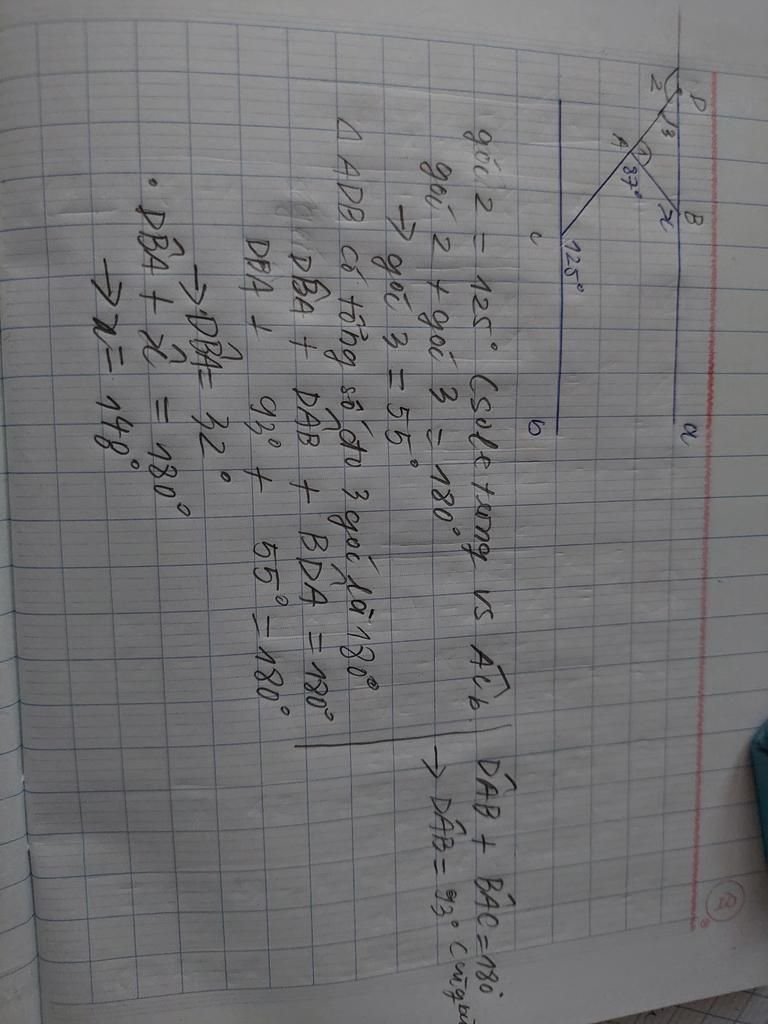 D
B
a
2
3
x
1
A
87°
125°
c
b
góc 2 = 125° (sole trong vs Aĉb
góc 2 + góc 3 = 180°
→ góc 3 = 55°
Δ ADB có tổng số đo 3 góc là 180°
DB̂A + DÂB + BD̂A = 180°
DBA + 93° + 55° = 180°
→ DB̂A = 32°
• DB̂A + x̂ = 180°
→ x = 148°
DÂB + BÂC = 180°
→ DÂB = 93° (
2